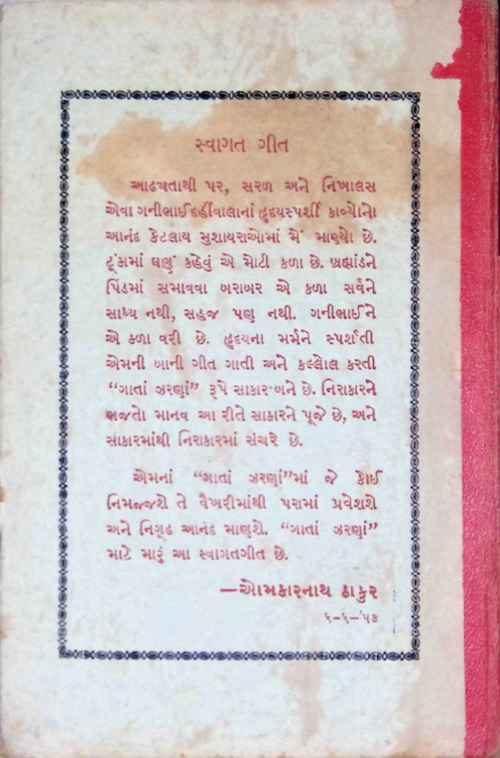 સ્વાગત ગીત
આઢ્યતાથી પર, સરળ અને નિખાલસ
એવા ગનીભાઈ દહીંવાલાનાં હૃદયસ્પર્શી કાવ્યોનો
આનંદ કેટલાય મુશાયરાઓમાં મેં માણ્યો છે.
ટૂંકામાં ઘણું કહેવું એ મોટી કળા છે. બ્રહ્માંડને
પિંડમાં સમાવવા બરાબર એ કળા સર્વને
સાધ્ય નથી, સહજ પણ નથી. ગનીભાઈને
એ કળા વરી છે. હૃદયના મર્મને સ્પર્શતી
એમની બાની ગીત ગાતી અને કલ્લોલ કરતી
“ગાતાં ઝરણાં” રૂપે સાકાર બને છે. નિરાકારને
ભજતો માનવ આ રીતે સાકારને પૂજે છે, અને
સાકારમાંથી નિરાકારમાં સંચરે છે.
એમનાં “ગાતાં ઝરણાં”માં જે કોઈ
નિમજ્જશે તે વૈખરીમાંથી પરામાં પ્રવેશશે
અને નિગૂઢ આનંદ માણશે. “ગાતાં ઝરણાં”
માટે મારૂં આ સ્વાગતગીત છે.
—ઓમકારનાથ ઠાકુર
૬-૬-'૫૩